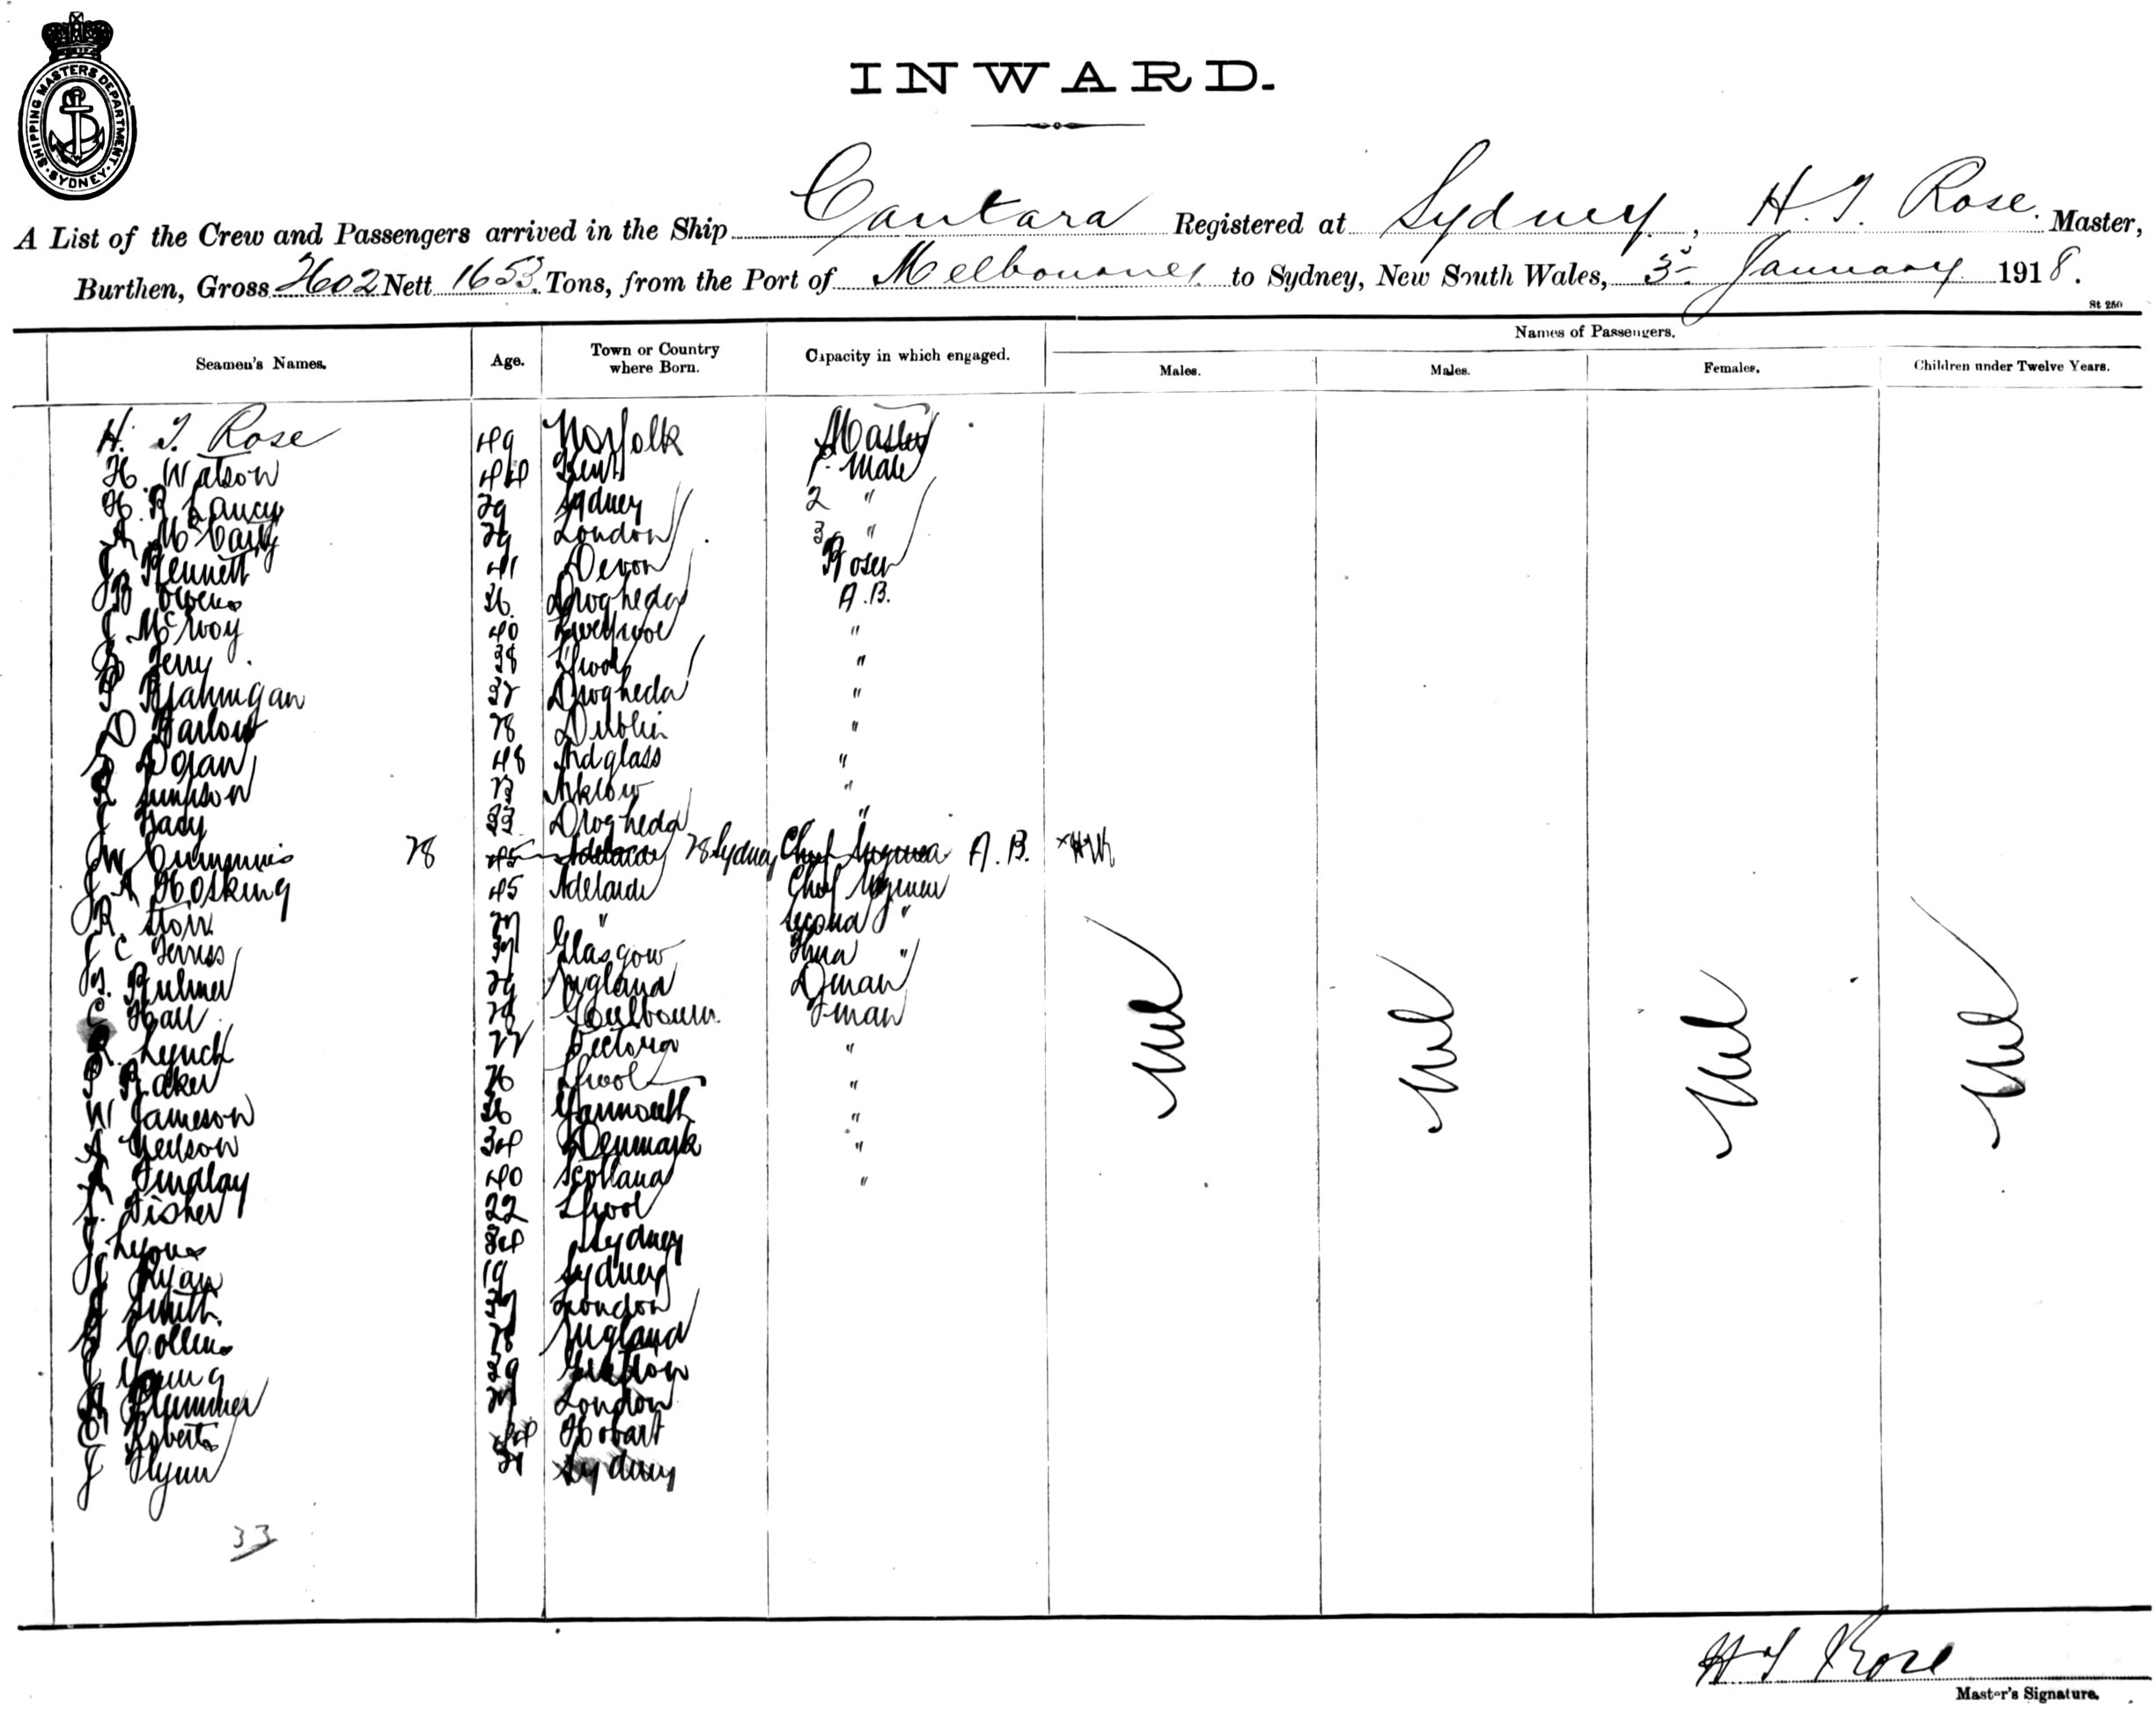 SHIPPING MASTERS DEPARTMENT. SYDNEY.
INWARD.
A List of the Crew and Passengers arrived in the Ship Cantara Registered at Sydney, H. T. Rose. Master,
Burthen, Gross 2602 Nett 1653 Tons, from the Port of Melbourne to Sydney, New South Wales, 3rd January 1918.
St 250
Names of Passengers.
Seamen's Names. Age. Town or Country where Born. Capacity in which engaged. Males. Males. Females. Children under Twelve Years.
H. T. Rose 49 Norfolk Master
H. Watson 44 Kent 1. Mate
H. R 29 Sydney 2 "
A McCarty 29 London 3 "
J Bennett 41 Devon Bosen
B Owens 36 Drogheda A.B.
J McIlroy 40 Liverpool "
Terry 38 L'pool "
P Brannigan 37 Drogheda "
D Harlow 28 Dublin "
Doran 48 Ardglass "
R Simpson 23 Arklow "
J 33 Drogheda "
W Cummins 28 45 Adelaide 28 Sydney Chief Engineer A.B.
J A Hosking 45 Adelaide Chief Engineer
R. Storr " Second "
J C Ferriss Glasgow Third "
Bulmer 29 England Dman
C Hall 28 Goulbourn Fman
R. Lynch 27 Victoria "
P Baker 26 L'pool "
W Jameson 36 Yarmouth "
A Neilson 34 Denmark "
A Findlay 40 Scotland "
Fisher 22 L'pool
J Lyons 34 Sydney
J Ryan 19 Sydney
J Smith London
Collins 28 England
J Young 39 Grafton
A Plummer London
C Roberts Hobart
J Flynn Sydney
Nil Nil Nil Nil
33
H T Rose
Master's Signature.